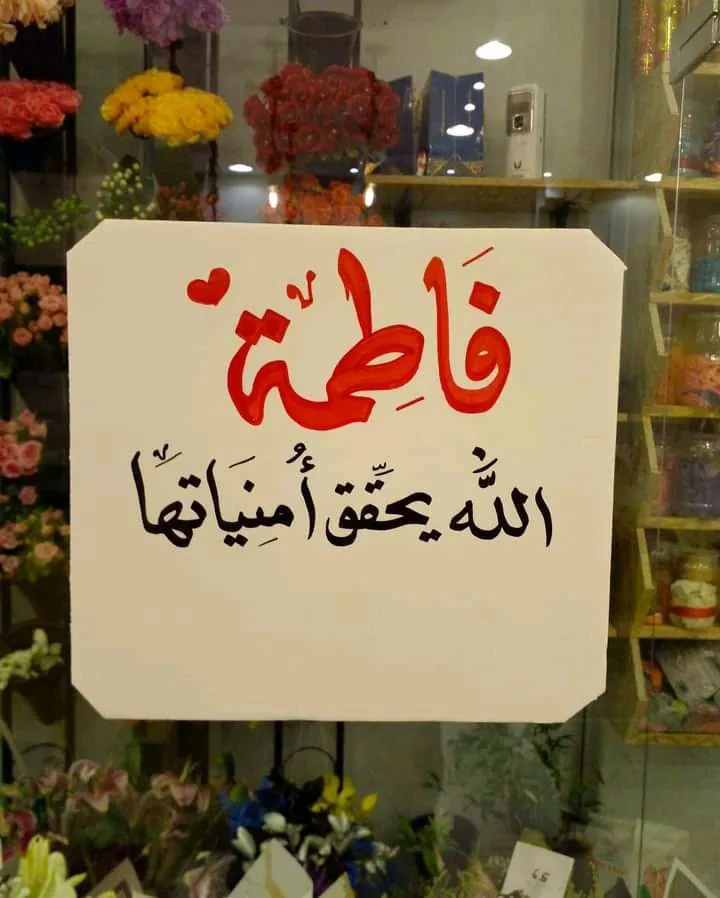 فَاطِمّة
اللَّه يحقّق أُمنِيَاتهَا